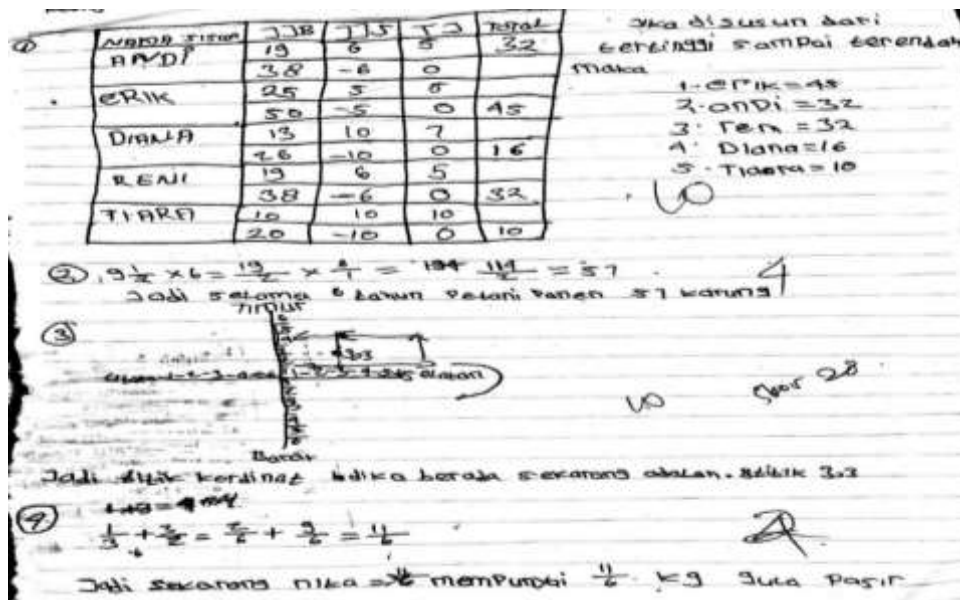 ① NAMA SISWA JJB JJS TJ Total
ANDI 19 6 5 32
38 -6 0
ERIK 25 5 0
50 -5 0 45
DIANA 13 10 7
26 -10 0 16
RENI 19 6 5
38 -6 0 32
TIARA 10 10 10
20 -10 0 10
Jika disusun dari
tertinggi sampai terendah
maka
1. erik = 45
2. andi = 32
3. reni = 32
4. Diana = 16
5. Tiara = 10
② 9 1/2 × 6 = 19/2 × 6/1 = 114/2 = 57
Jadi selama 6 tahun Petani Panen 57 karung
4
③ Timur
Barat
Skor 28
Jadi titik kordinat dika berada sekarang adalah titik 3.3
④ 1/3 + 3/2 = 2/6 + 9/6 = 11/6
Jadi sekarang nika mempunyai 11/6 kg gula Pasir